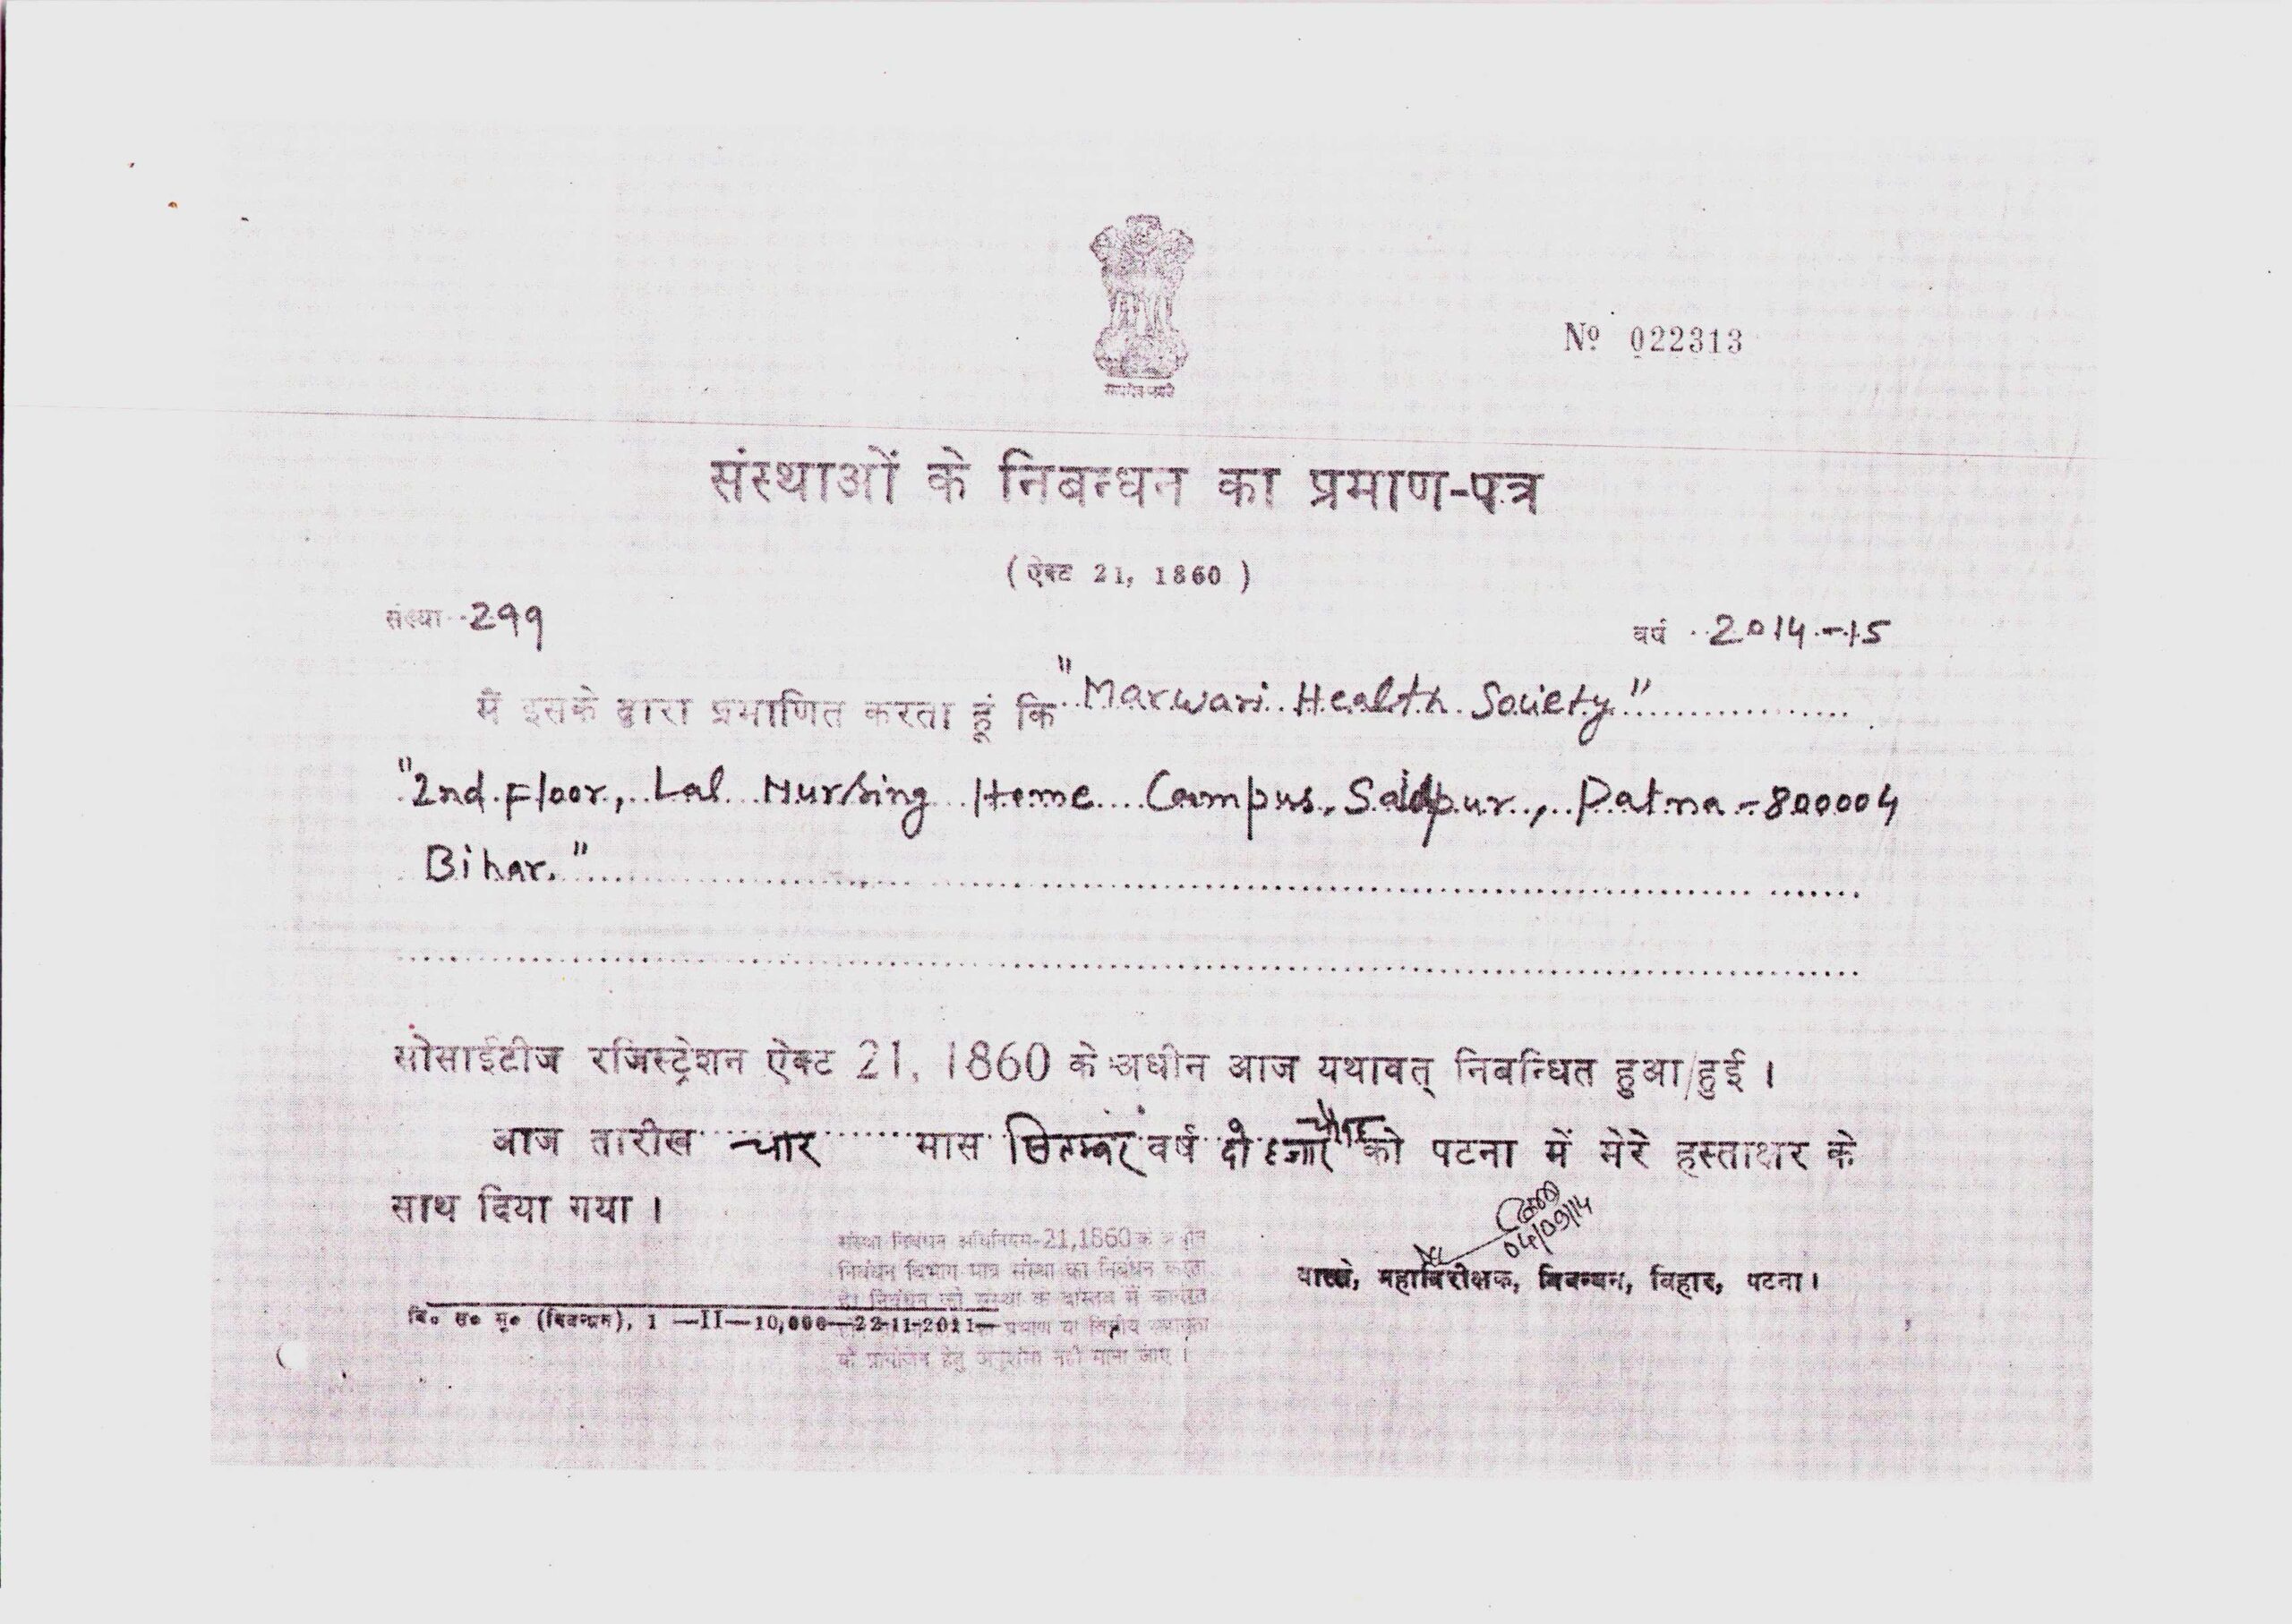 सत्यमेव जयते
Nº 022313
संस्थाओं के निबन्धन का प्रमाण-पत्र
( ऐक्ट 21, 1860 )
संख्या 299 वर्ष 2014-15
मैं इसके द्वारा प्रमाणित करता हूं कि "Marwari Health Society"
"2nd Floor, Lal Nursing Home Campus, Saidpur, Patna-800004
Bihar."
सोसाईटीज रजिस्ट्रेशन ऐक्ट 21, 1860 के अधीन आज यथावत् निबन्धित हुआ/हुई ।
आज तारीख चार मास सितम्बर वर्ष दो हजार चौदह को पटना में मेरे हस्ताक्षर के
साथ दिया गया ।
04/09/14
वास्ते, महानिरीक्षक, निबन्धन, बिहार, पटना ।
संस्था निबंधन अधिनियम-21,1860 के
निबंधन विभाग मात्र संस्था का निबंधन करता
है। निबंधन को संस्था के वास्तव में कार्यरत
प्रमाण या वित्तीय सहायता
के प्रायोजन हेतु अनुशंसा नहीं माना जाए ।
बि० स० मु० (निबन्धन), 1 —II—10,000—22-11-2011—